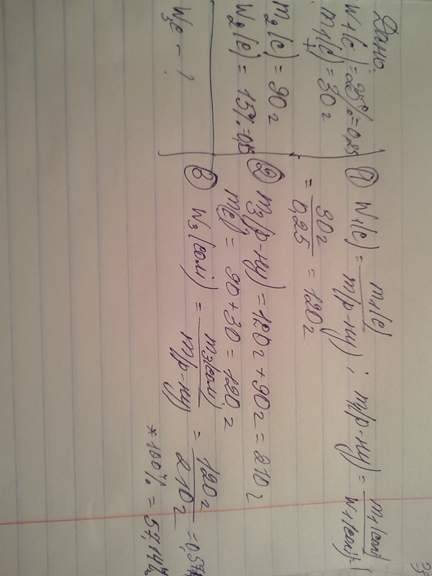 Дано:
W1(c)=25%=0,25
m1(c)=30г
m2(c)=90г
W2(c)=15%=0,15
W3c - ?
① W1(c) = m1(c) / m(р-ну) ; m(р-ну) = m1(соли) / W1(соли)
= 30г / 0,25 = 120г
② m3(р-ну)=120г+90г=210г
m(c)= 90+30=120г
③ W3(соли) = m3(соли) / m(р-ну) = 120г / 210г =0,57
*100% = 57,14%